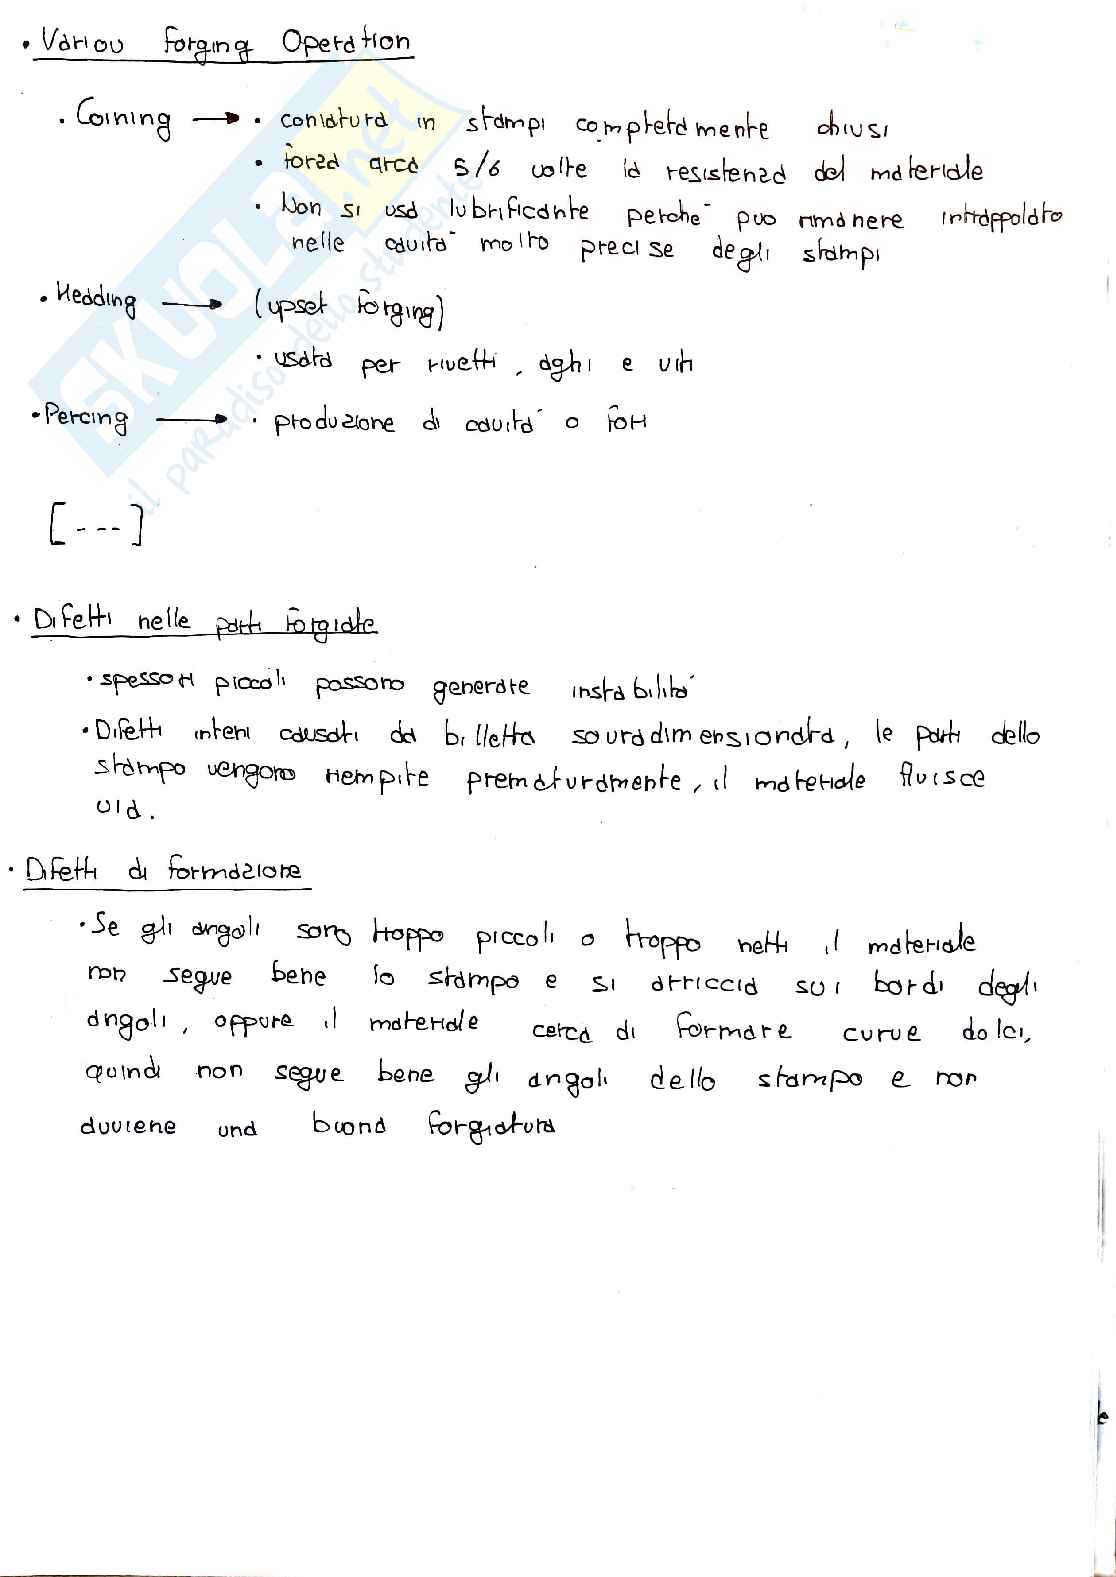 • Variou Forging Operation
• Coining → • coniatura in stampi completamente chiusi
• forza circa 5/6 volte la resistenza del materiale
• Non si usa lubrificante perche´ puo rimanere intrappolato
nelle cavita´ molto precise degli stampi
• Hedding → (upset forging)
• usata per rivetti, aghi e viti
• Percing → • produzione di cavita´ o fori
[---]
• Difetti nelle parti forgiate
• spessori piccoli possono generare instabilita´
• Difetti interni causati da billetta sovradimensionata, le parti dello
stampo vengono riempite prematuramente, il materiale fluisce
via.
• Difetti di formazione
• Se gli angoli sono troppo piccoli o troppo netti il materiale
non segue bene lo stampo e si arriccia sui bordi degli
angoli, oppure il materiale cerca di formare curve dolci,
quindi non segue bene gli angoli dello stampo e non
avviene una buona forgiatura
SKUOLA.net
il paradiso dello studente